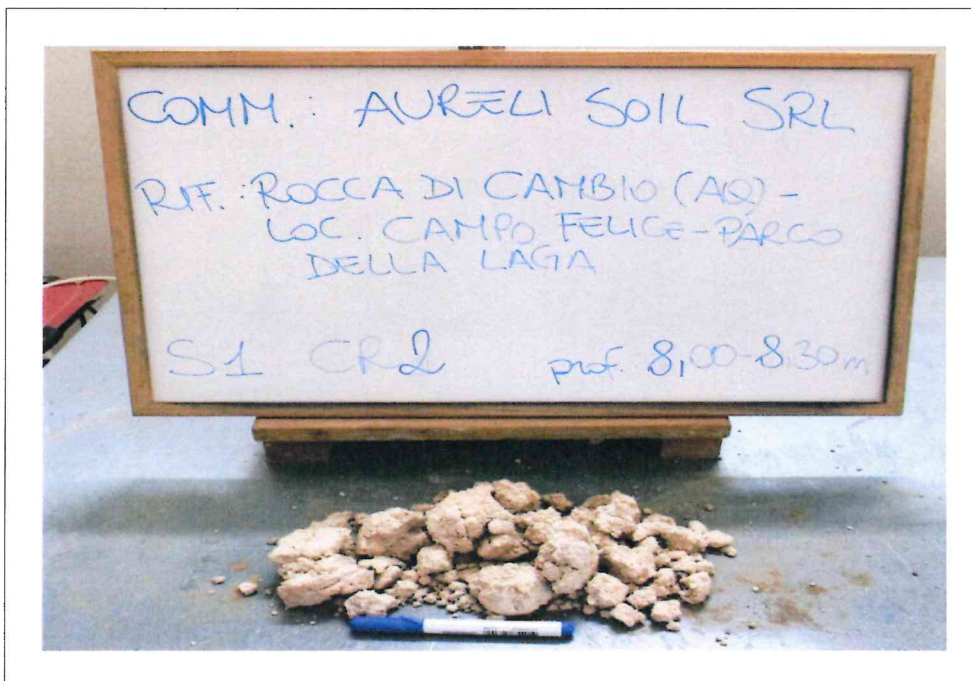 COMM.: AURELI SOIL SRL
RIF.: ROCCA DI CAMBIO (AQ) -
LOC. CAMPO FELICE - PARCO
DELLA LAGA
S1 CR2 prof. 8,00-8,30 m